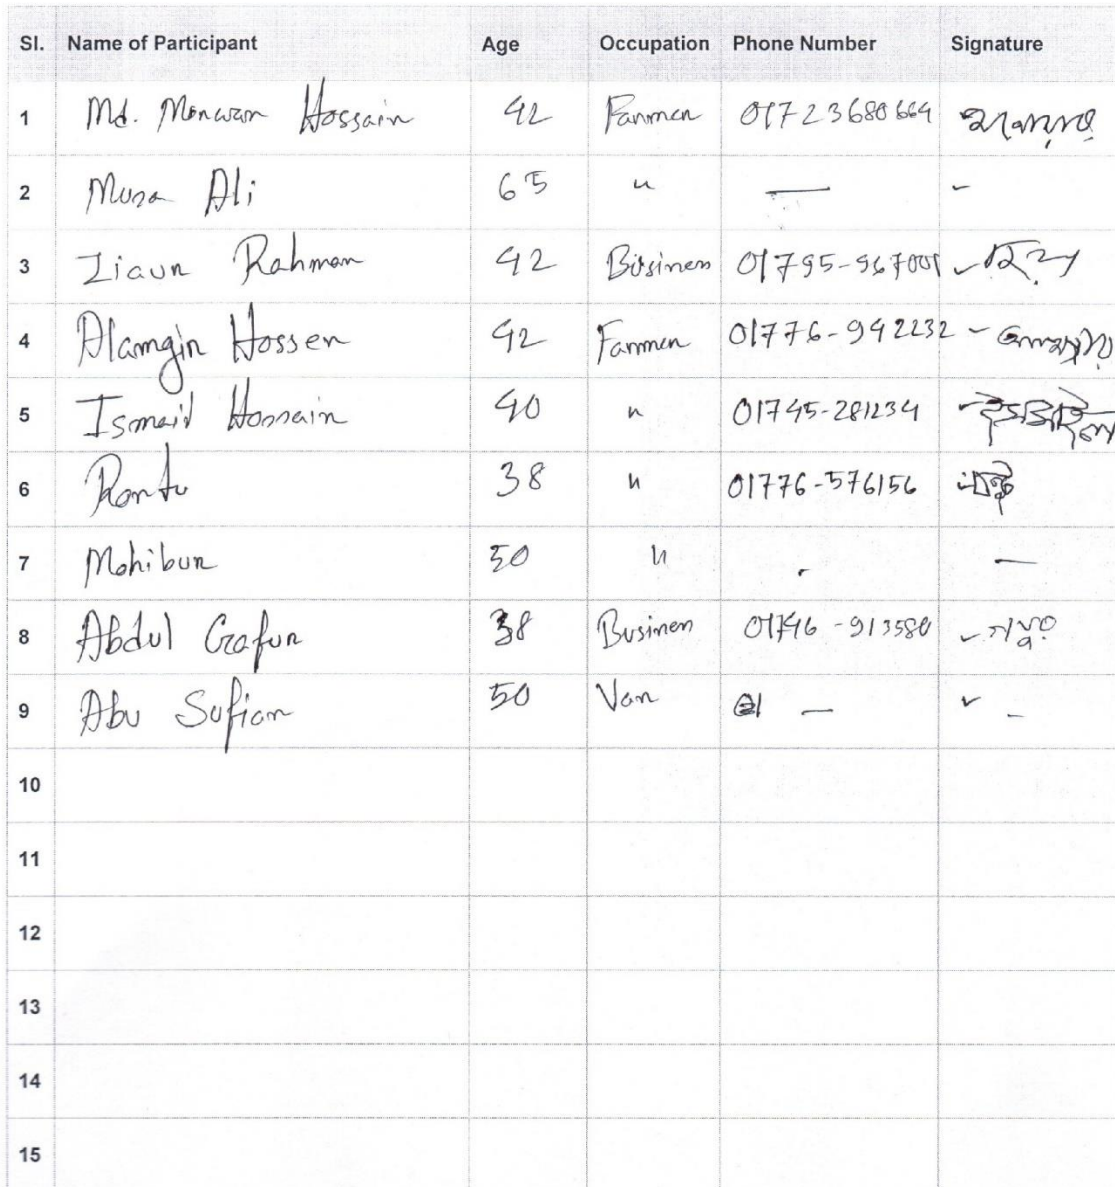 Sl. Name of Participant Age Occupation Phone Number Signature
1 Md. Monwar Hossain 42 Farmer 01723680664
2 Musa Ali 65 " — -
3 Ziaur Rahman 42 Business 01795-967001
4 Alamgir Hossen 42 Farmer 01776-942232
5 Ismail Hossain 40 " 01745-281234
6 Rantu 38 " 01776-576156
7 Mohibur 50 " . —
8 Abdul Gafur 38 Business 01746-913580 গফুর
9 Abu Sufian 50 Van — -
10
11
12
13
14
15